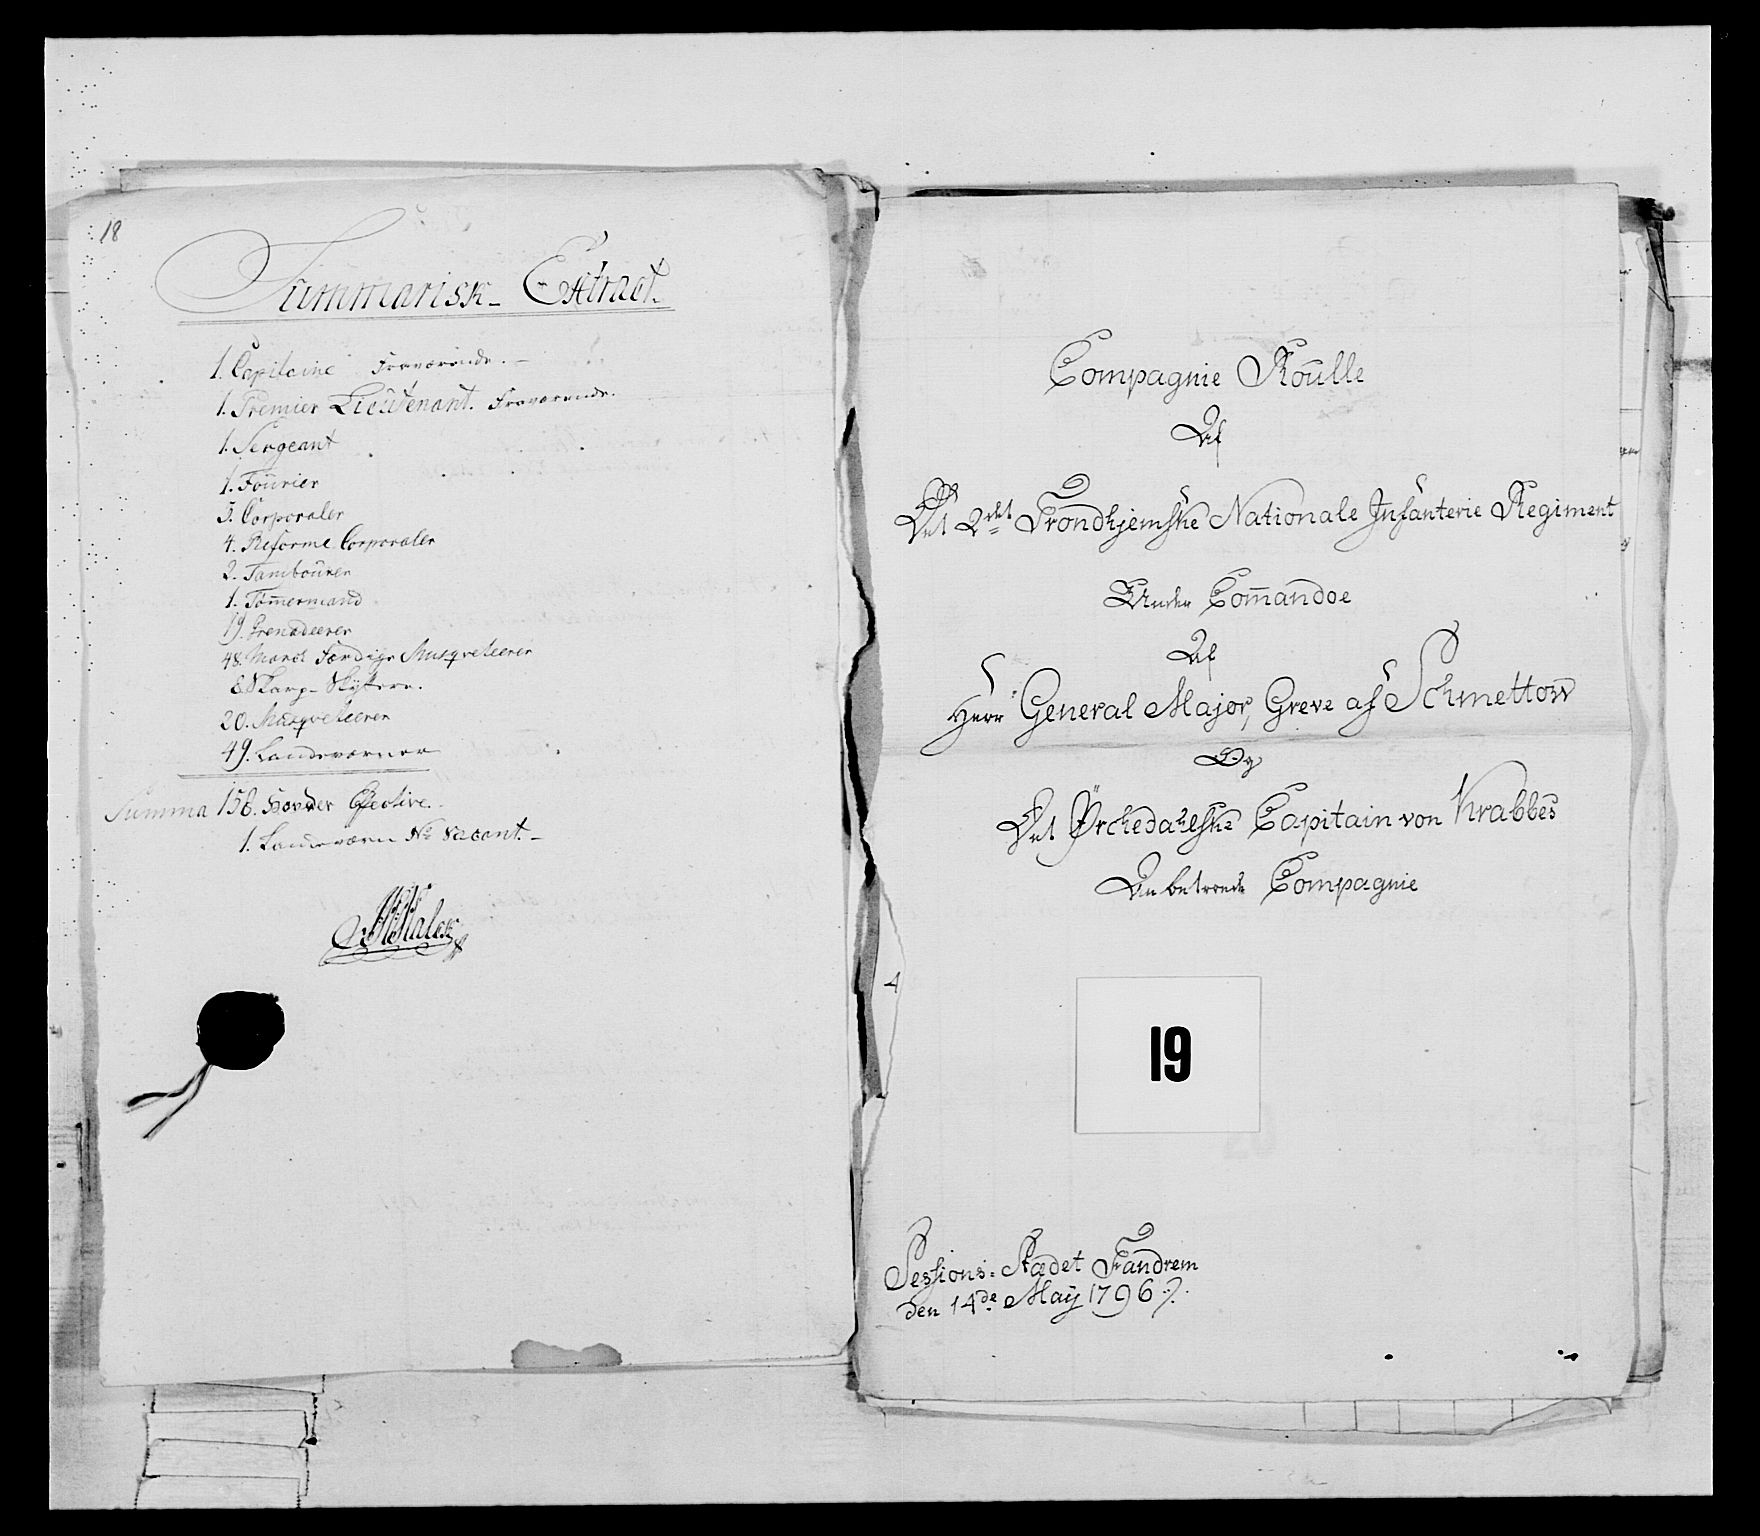 18
Summarisk- Extract.
1. Capitaine Fraværende. -
1. Premier Lieutenant. Fraværende.
1. Sergeant
1. Fourier
3. Corporaler
4. Reforme Corporaler
2. Tambourer
1. Tømermand
19. Grenadeerer
48. Færdige Musqveteerer
8. Skarp-Skÿttere.
20. Musqveteerer
49. Landeværner
Summa 158. Hoveder Efective.
1. Landeværn No Vacant. -
Compagnie Roulle
Af
Det 2det Trondhjemske Nationale Infanterie Regiment
Under Com̄andoe
Af
Herr General Major, Greve af Schmettow
Og
Det Örchedahlske Capitain von Krabbes
Anbetroede Compagnie
4
19
Sessions-Stædet Fandrem
den 14de Maÿ 1796